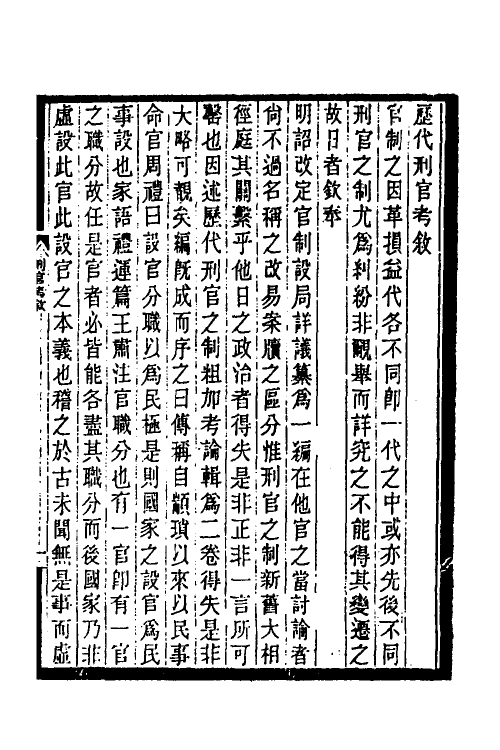 歷代刑官考敘
官制之因革損益代各不同卽一代之中或亦先後不同
刑官之制尤為糾紛非覼舉而詳究之不能得其變遷之
故日者欽奉
明詔改定官制設局詳議纂為一編在他官之當討論者
尙不過名稱之改易案牘之區分惟刑官之制新舊大相
徑庭其關繫乎他日之政治者得失是非正非一言所可
罄也因述歷代刑官之制粗加考論輯為二卷得失是非
大略可覩矣編旣成而序之曰傳稱自顓頊以來以民事
命官周禮曰設官分職以為民極是則國家之設官為民
事設也家語禮運篇王肅注官職分也有一官卽有一官
之職分故任是官者必皆能各盡其職分而後國家乃非
虛設此官此設官之本義也稽之於古未聞無是事而虛
刑官考敘
一